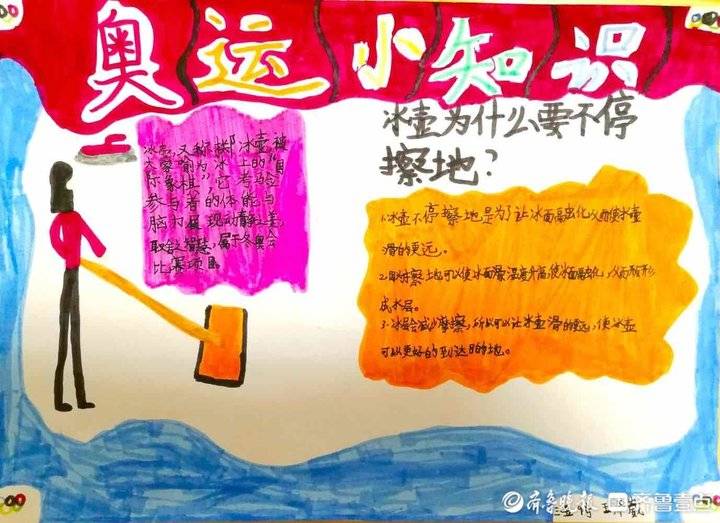 奥运小知识
冰壶为什么要不停
擦地?
冰壶,又称掷冰壶被
大家喻为冰上的"国
际象棋",它考验
参与者的体能与
脑力,展现动静之美,
取舍之智慧,属于冬奥会
比赛项目。
1.冰壶不停擦地是为了让冰面融化从而使冰壶
滑的更远。
2.用时擦地可以使冰面温度升高,使冰面融化,从而形
成水层。
3.冰层会减少摩擦,所以可以让冰壶滑的远,使冰壶
可以更好的到达目的地。
齐鲁晚报
齐鲁壹点